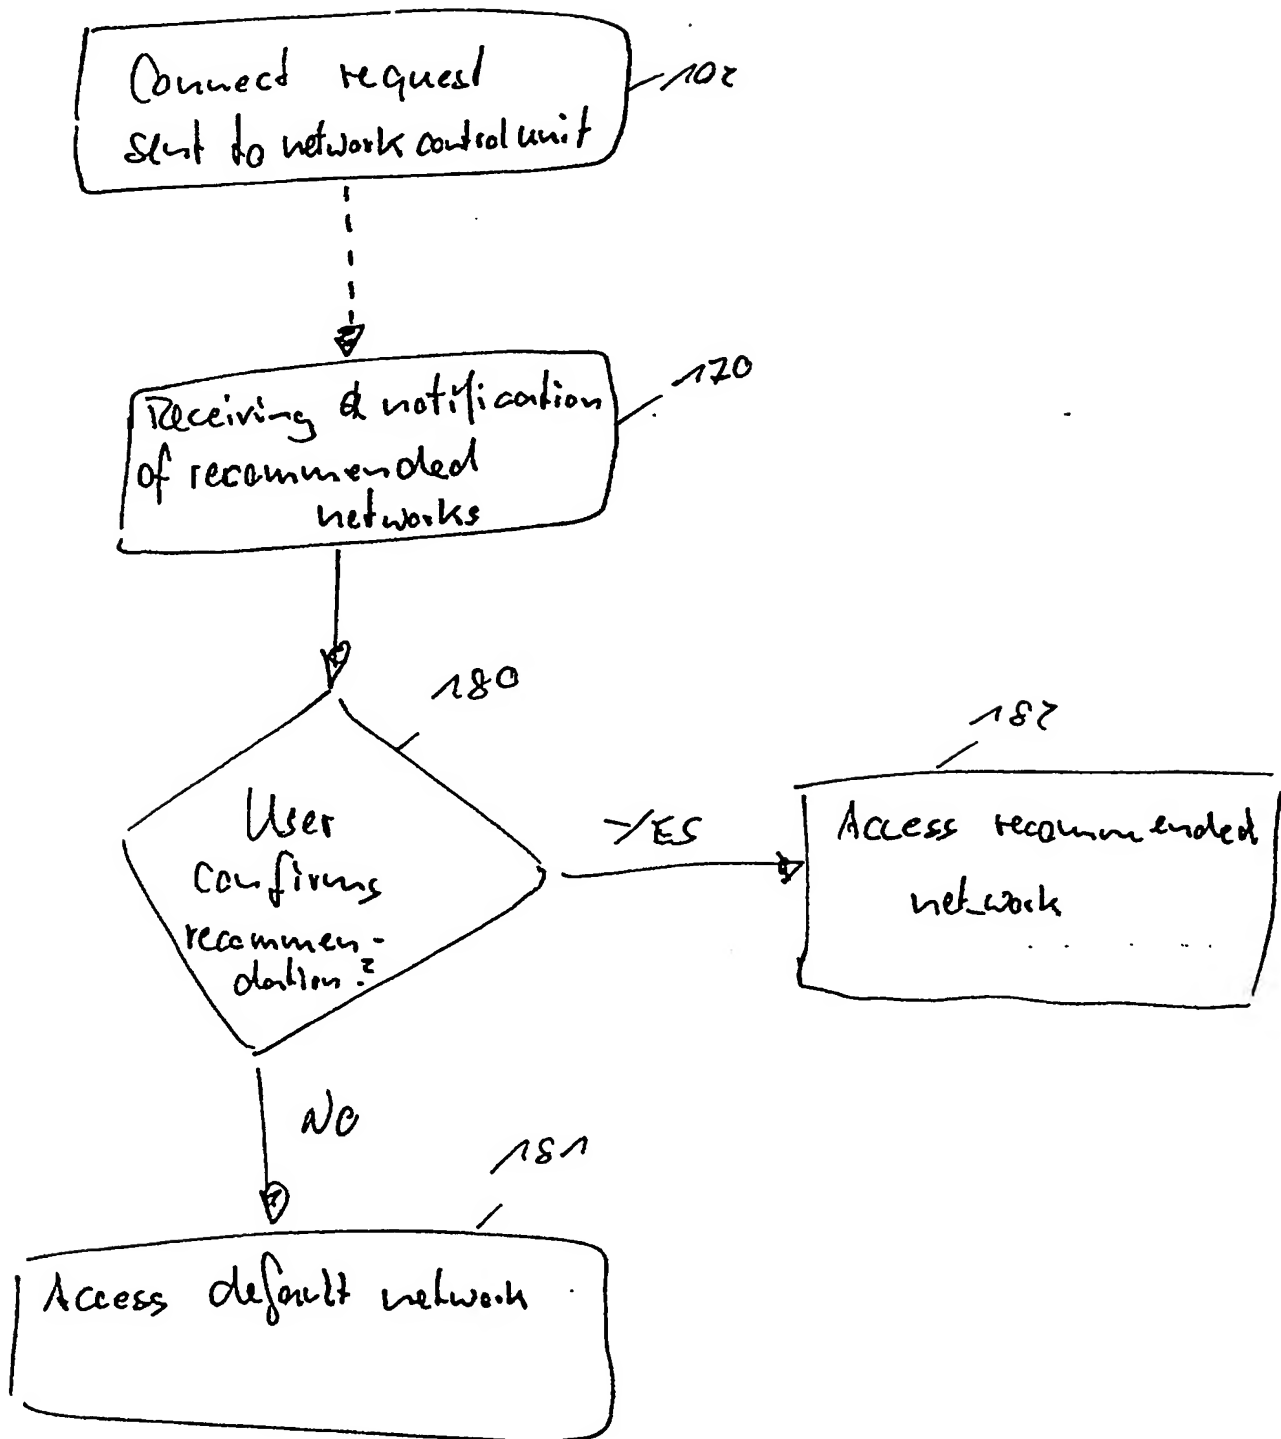 Connect request
sent to network control unit
102
170
Receiving & notification
of recommended
networks
180
182
User
confirms
recommen-
dation?
YES
Access recommended
network
NO
181
Access default network